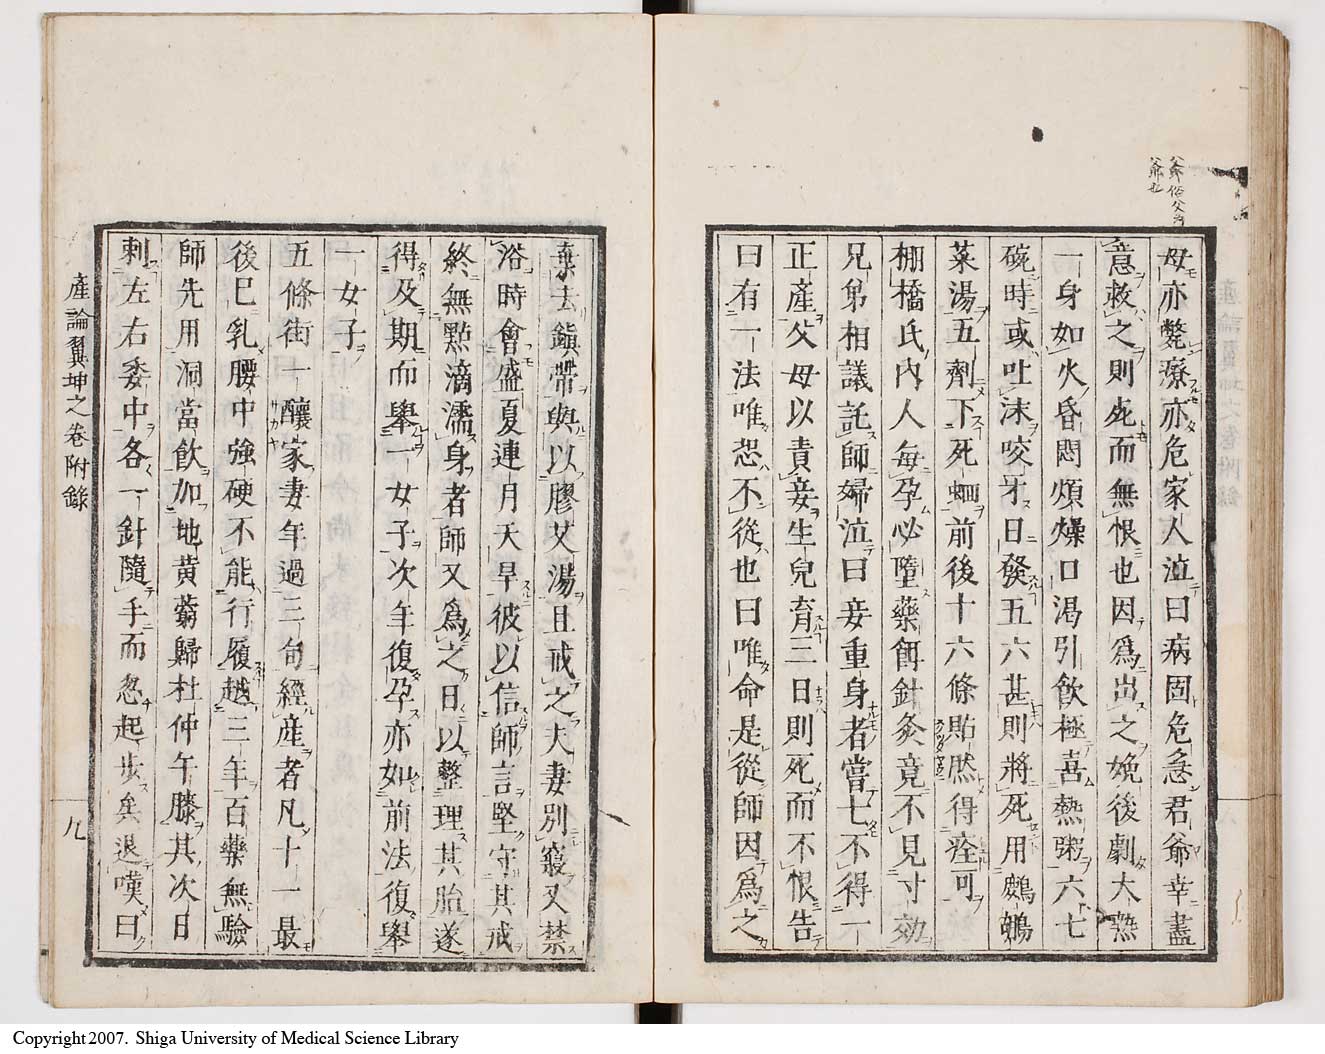 爺俗父爲
爺也
母亦斃療亦危家人泣曰病固危急君爺幸盡
意救之則死而無恨也因爲出之娩後劇大熱
一身如火昏悶煩燥口渴引飲極喜熱粥六七
碗時或吐沫咬牙日發五六甚則將死用鷓鴣
菜湯五劑下死蛔前後十六條貼然得痊可
棚橋氏內人每孕必墮藥餌針灸竟不見寸効
兄弟相議託師婦泣曰妾重身者嘗七不得一
正產父母以責妾生兒育三日則死而不恨告
曰有一法唯恐不從也曰唯命是從師因爲之
棄去鎭帶與以膠艾湯且戒之夫妻別寢又禁
浴時會盛夏連月天旱彼以信師言堅守其戒
終無點滴濡身者師又爲之日以整理其胎遂
得及期而舉一女子次年復孕亦如前法復舉
一女子
五條街一釀家妻年過三旬經產者凡十一最
後已乳腰中強硬不能行履越三年百藥無驗
師先用洞當飲加地黄藭歸杜仲午膝其次日
刺左右委中各一針隨手而忽起步矣退嘆曰
產論翼坤之卷附錄
九
Copyright 2007. Shiga University of Medical Science Library